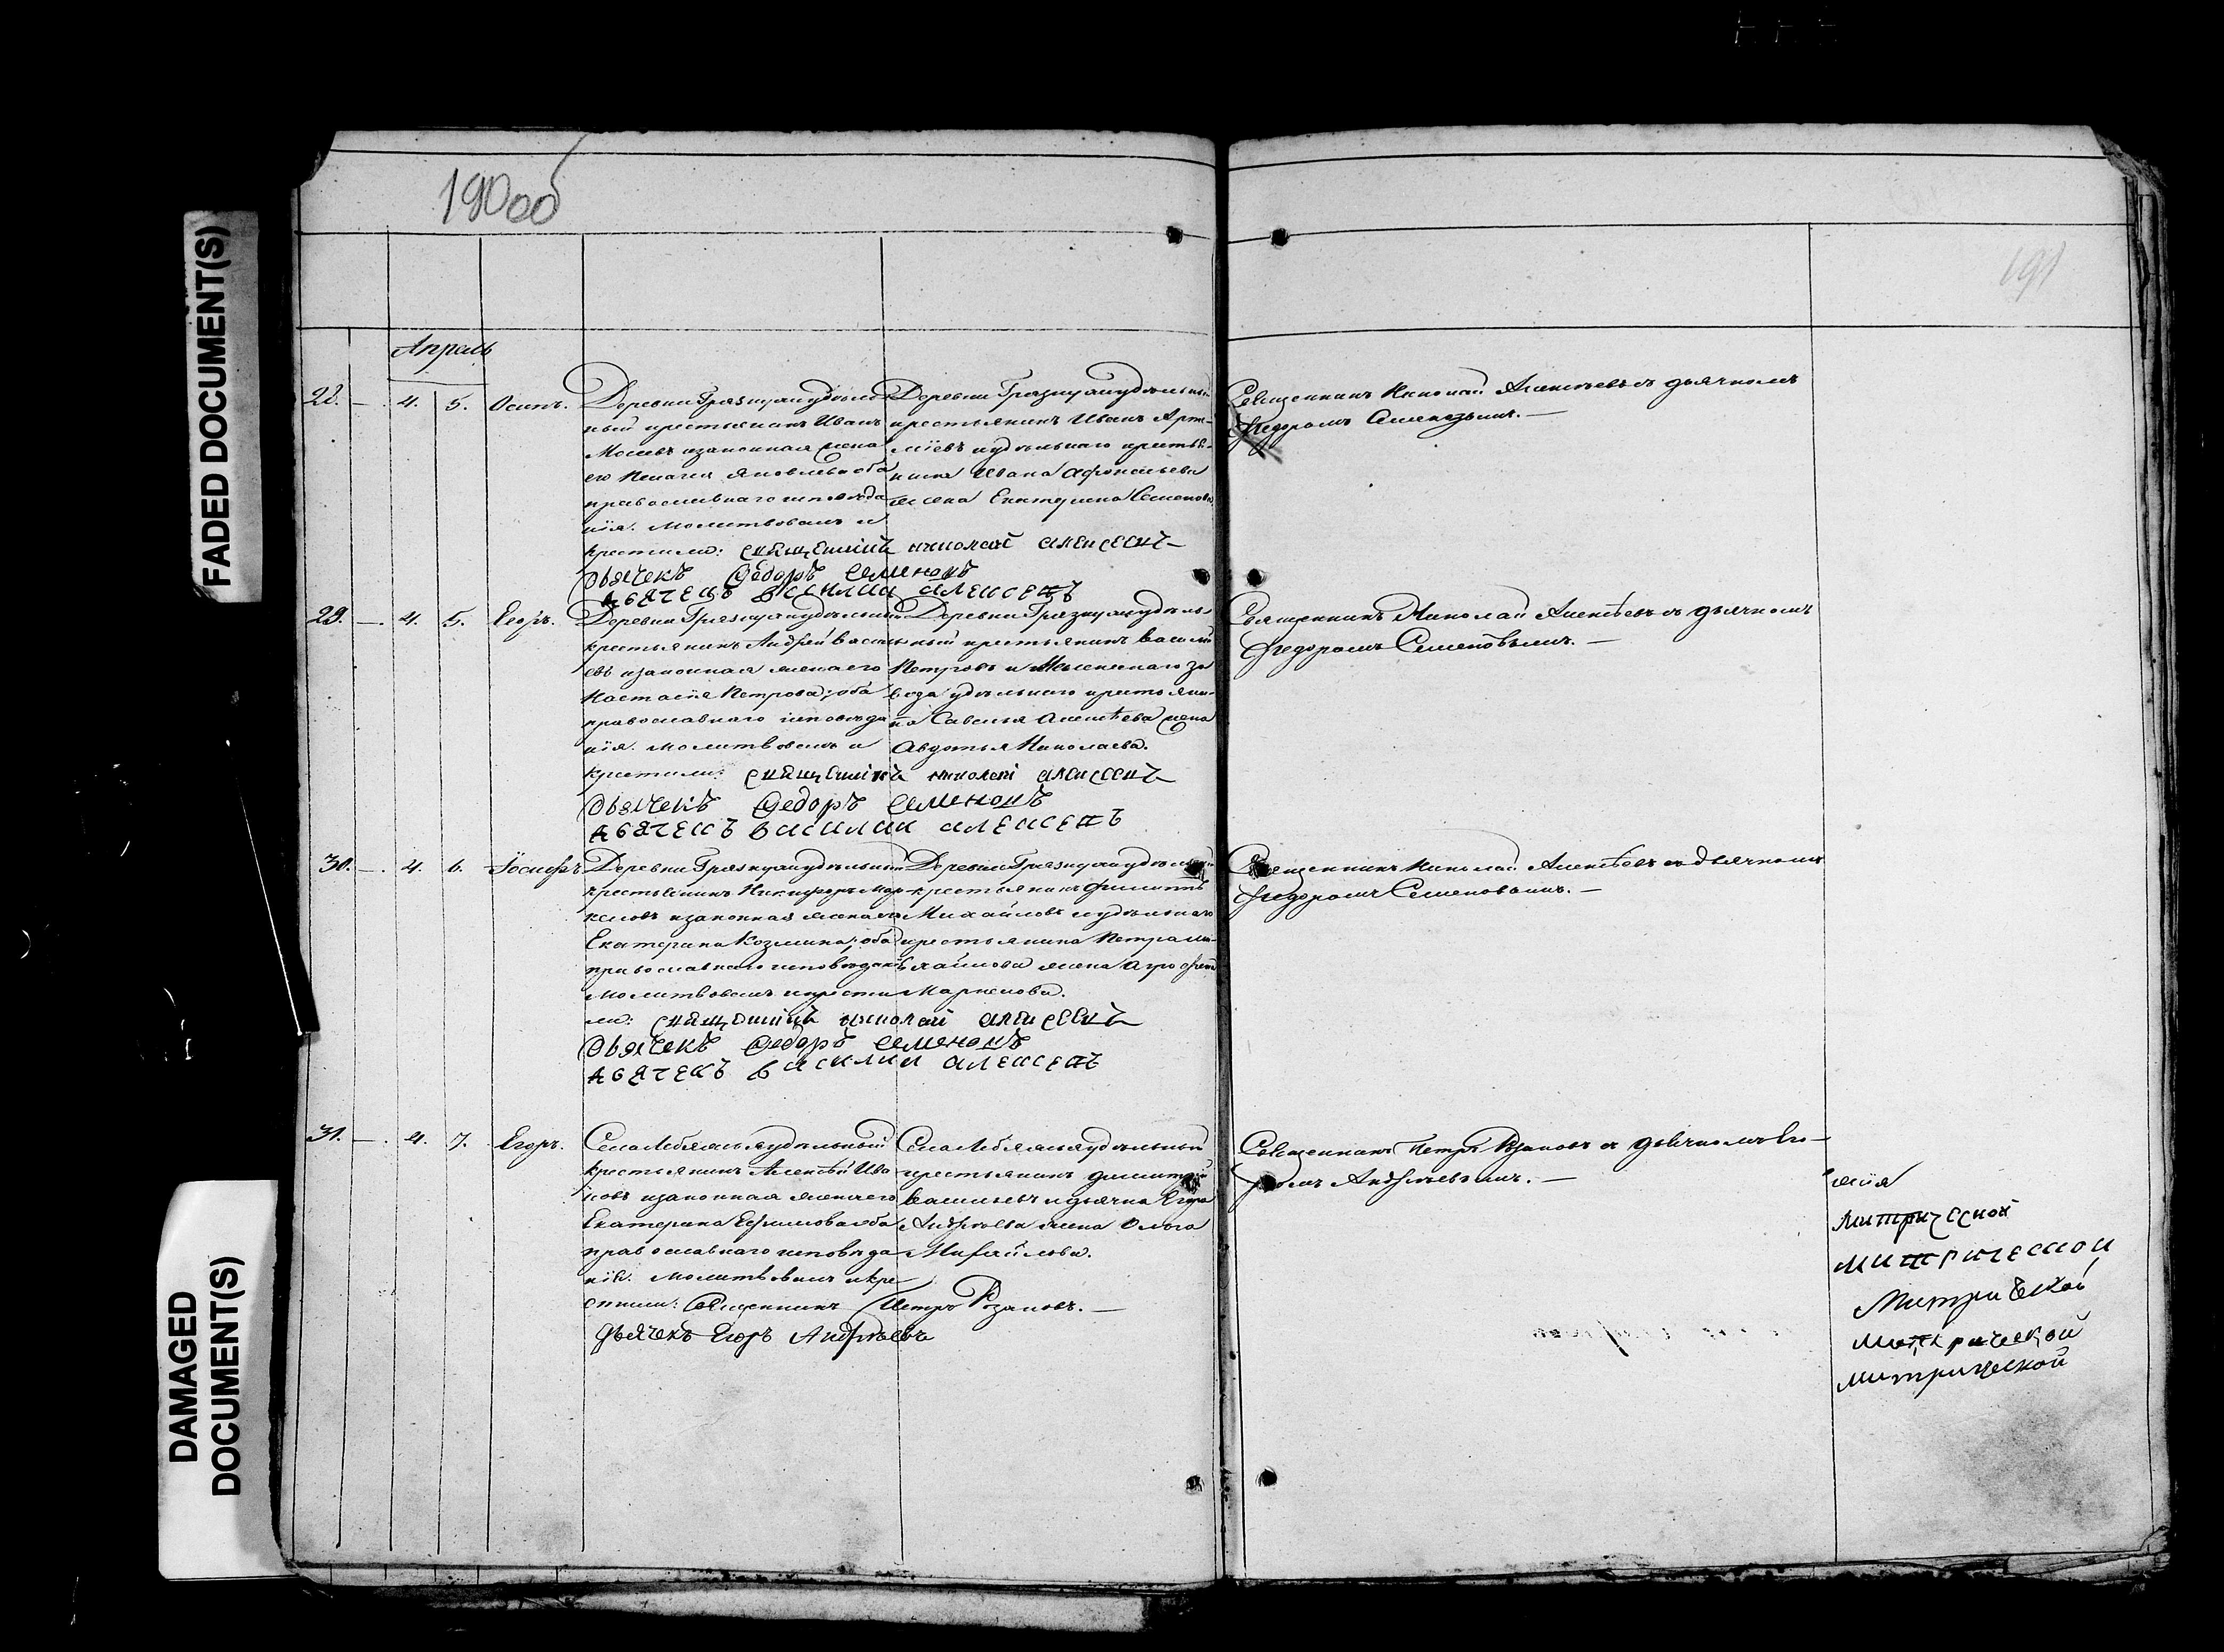 FADED DOCUMENT(S)
DAMAGED
DOCUMENT(S)
190 об
191
Апрель
28. — 4. 5. Осипъ.
Деревни Грязнухи удѣль
ный крестьянинъ Иванъ
Моисѣевъ и законная жена
его Пелагея Яковлева оба
православнаго исповѣда
нія. Молитвовалъ и
крестили: священникъ николай алексеевъ
дьячекъ Федоръ Семеновъ
дьячекъ василии алексеевъ
Деревни Грязнухи удѣльный
крестьянинъ Иванъ Арте-
міевъ и удѣльнаго крестья-
нина Ивана Афонасьева
жена Екатерина Семенова
Священникъ Николай Алексѣевъ съ дьячкомъ
Федоромъ Семеновымъ. —
29. — 4. 5. Егоръ.
Деревни Грязнухи удѣльный
крестьянинъ Андрей Василь
евъ и законная жена его
Настасія Петрова; оба
православнаго исповѣда
нія. Молитвовалъ и
крестили: священникъ николай алексеевъ
дьячекъ Федоръ Семеновъ
дьячекъ василии алексеевъ
Деревни Грязнухи удѣль-
ный крестьянинъ Василій
Петровъ и за
вода удѣльнаго крестьяни-
на Савелья Алексѣева жена
Авдотья Николаева.
Священникъ Николай Алексѣевъ съ дьячкомъ
Федоромъ Семеновымъ. —
30. — 4. 6. Іосифъ
Деревни Грязнухи удѣльный
крестьянинъ Никифоръ Мар
келовъ и законная жена его
Екатерина Козмина; оба
православнаго исповѣданія
Молитвовалъ и крести
ли: священникъ николай алексеевъ
дьячекъ Федоръ Семеновъ
дьячекъ василии алексеевъ
Деревни Грязнухи удѣльный
крестьянинъ Филиппъ
Михайловъ и удѣльнаго
крестьянина Петра Ми-
хайлова жена
Маркелова.
Священникъ Николай Алексѣевъ съ дьячкомъ
Федоромъ Семеновымъ. —
31. — 4. 7. Егоръ.
Села Лебяжья удѣльный
крестьянинъ Алексѣй Ива
новъ и законная жена его
Екатерина Ефимова оба
православнаго исповѣда
нія. Молитвовалъ и кре
стили: Священникъ Петръ Розановъ. —
дьячекъ Егоръ Андрѣевъ
Села Лебяжья удѣльный
крестьянинъ Димитрій
Васильевъ и дьячка Егора
Андрѣева жена Ольга
Михайлова.
Священникъ Петръ Розановъ съ дьячкомъ Его-
ромъ Андрѣевымъ. —
митрической
митрической
Митрической
митрической
митрической